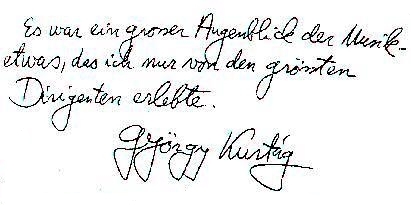 Es war ein groser Augenblick der Musik-
etwas, das ich nur von den grössten
Dirigenten erlebte.
György Kurtág